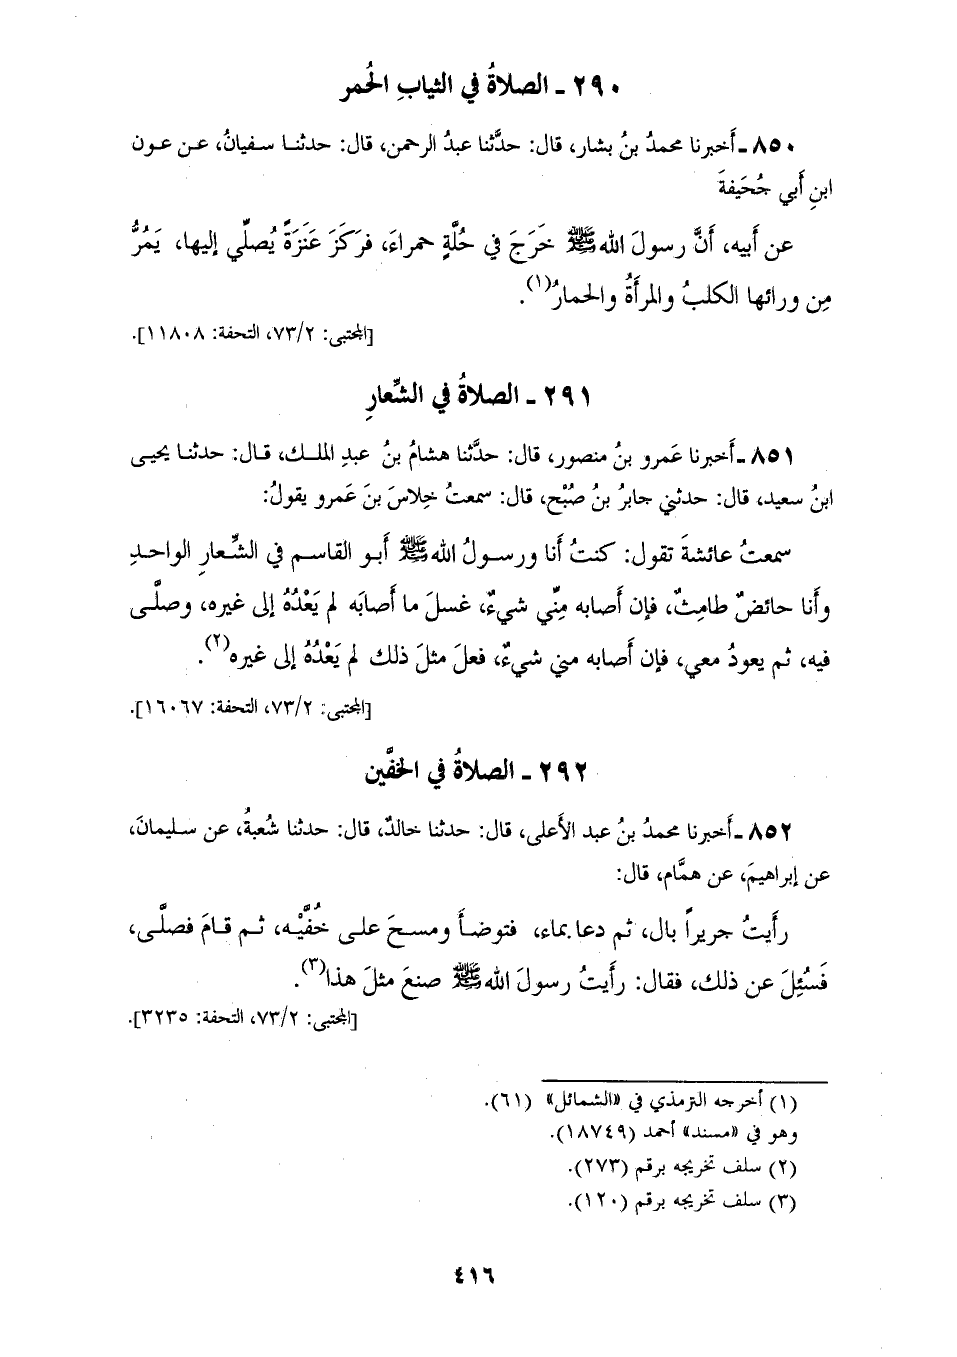 ٢٩٠ ـ الصلاةُ في الثيابِ الحُمر
٨٥٠ ـ أَخبرنا محمدُ بنُ بشار، قال: حدَّثنا عبدُ الرحمن، قال: حدثنـا سـفيانُ، عـن عـون
ابنِ أَبي جُحَيفةَ
عن أبيه، أَنَّ رسولَ اللهﷺ خَرَجَ في حُلَّةٍ حمراءَ، فرَكَزَ عَنَزَةً يُصلّي إليها، يَمُرُّ
مِن ورائها الكلبُ والمرأةُ والحمارُ(١).
[المجتبى: ٧٣/٢، التحفة: ١١٨٠٨].
٢٩١ ـ الصلاةُ في الشِّعارِ
٨٥١ ـ أَخبرنا عَمرو بنُ منصور، قال: حدَّثنا هشامُ بنُ عبدِ الملـك، قـال: حدثنـا يحيـى
ابنُ سعيد، قال: حدثني جابرُ بنُ صُبْح، قال: سمعتُ خِلاسَ بنَ عَمرو يقولُ:
سمعتُ عائشةَ تقول: كنتُ أنا ورسـولُ اللهﷺ أبـو القاسـم في الشِّـعارِ الواحـدِ
وأَنا حائضٌ طامِثٌ، فإن أَصابه مِنّي شيءٌ، غسلَ ما أَصابَه لم يَعْدُهُ إلى غيره، وصلَّـى
فيه، ثم يعودُ معي، فإن أَصابه مني شيءٌ، فعلَ مثلَ ذلك لم يَعْدُهُ إلى غيره(٢).
[المجتبى: ٧٣/٢، التحفة: ١٦٠٦٧].
٢٩٢ ـ الصلاةُ في الخفَّين
٨٥٢ ـ أَخبرنا محمدُ بنُ عبد الأَعلى، قال: حدثنا خالدٌ، قال: حدثنا شُعبةُ، عن سـليمانَ،
عن إبراهيمَ، عن همَّام، قال:
رأَيتُ جريراً بال، ثم دعا بماء، فتوضـأَ ومسـحَ علـى خُفَّيْـه، ثـم قـامَ فصلَّـى،
فَسُئِلَ عن ذلك، فقال: رأَيتُ رسولَ اللهﷺ صنعَ مثلَ هذا(٣).
[المجتبى: ٧٣/٢، التحفة: ٣٢٣٥].
(١) أخرجه الترمذي في «الشمائل» (٦١).
وهو في «مسند» أحمد (١٨٧٤٩).
(٢) سلف تخريجه برقم (٢٧٣).
(٣) سلف تخريجه برقم (١٢٠).
٤١٦